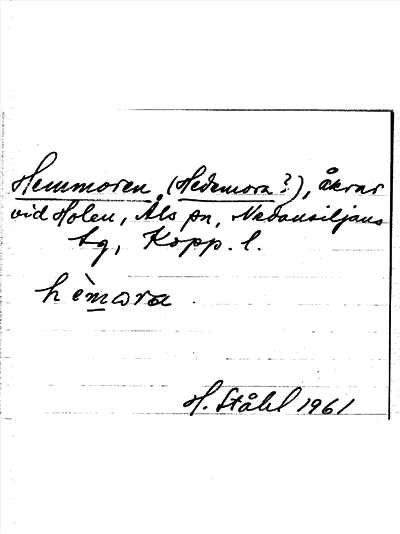 Hemmoren (Hedemora?), åkrar
vid Holen, Åls sn, Nedansiljans
tg, Kopp. l.
hèmora
H. Ståhl 1961